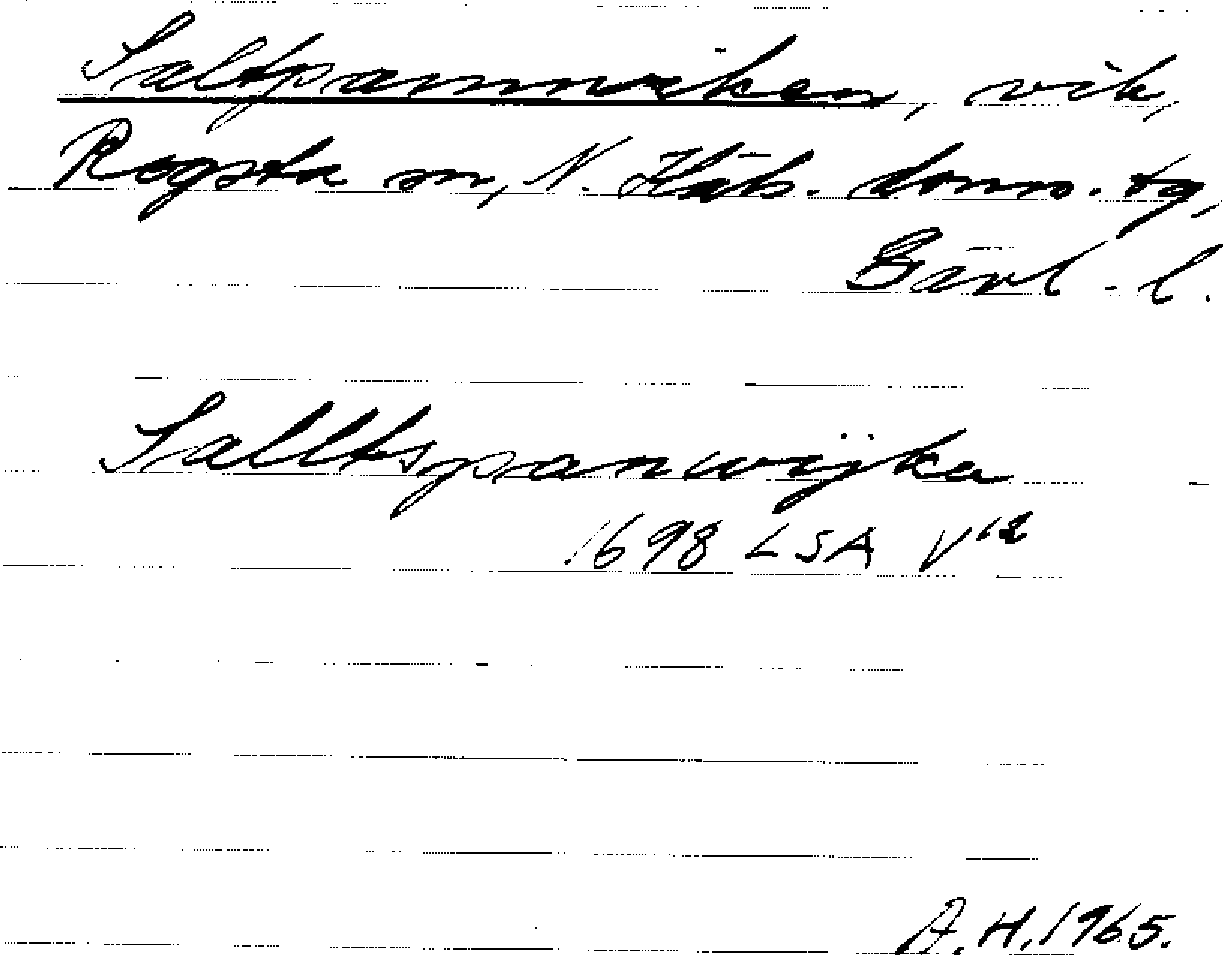 Saltpannviken, vik,
Rogsta sn, N. Häls. doms. tg,
Gävl. l.
Salltspanwijka
1698 LSA V¹²
A.H. 1965.